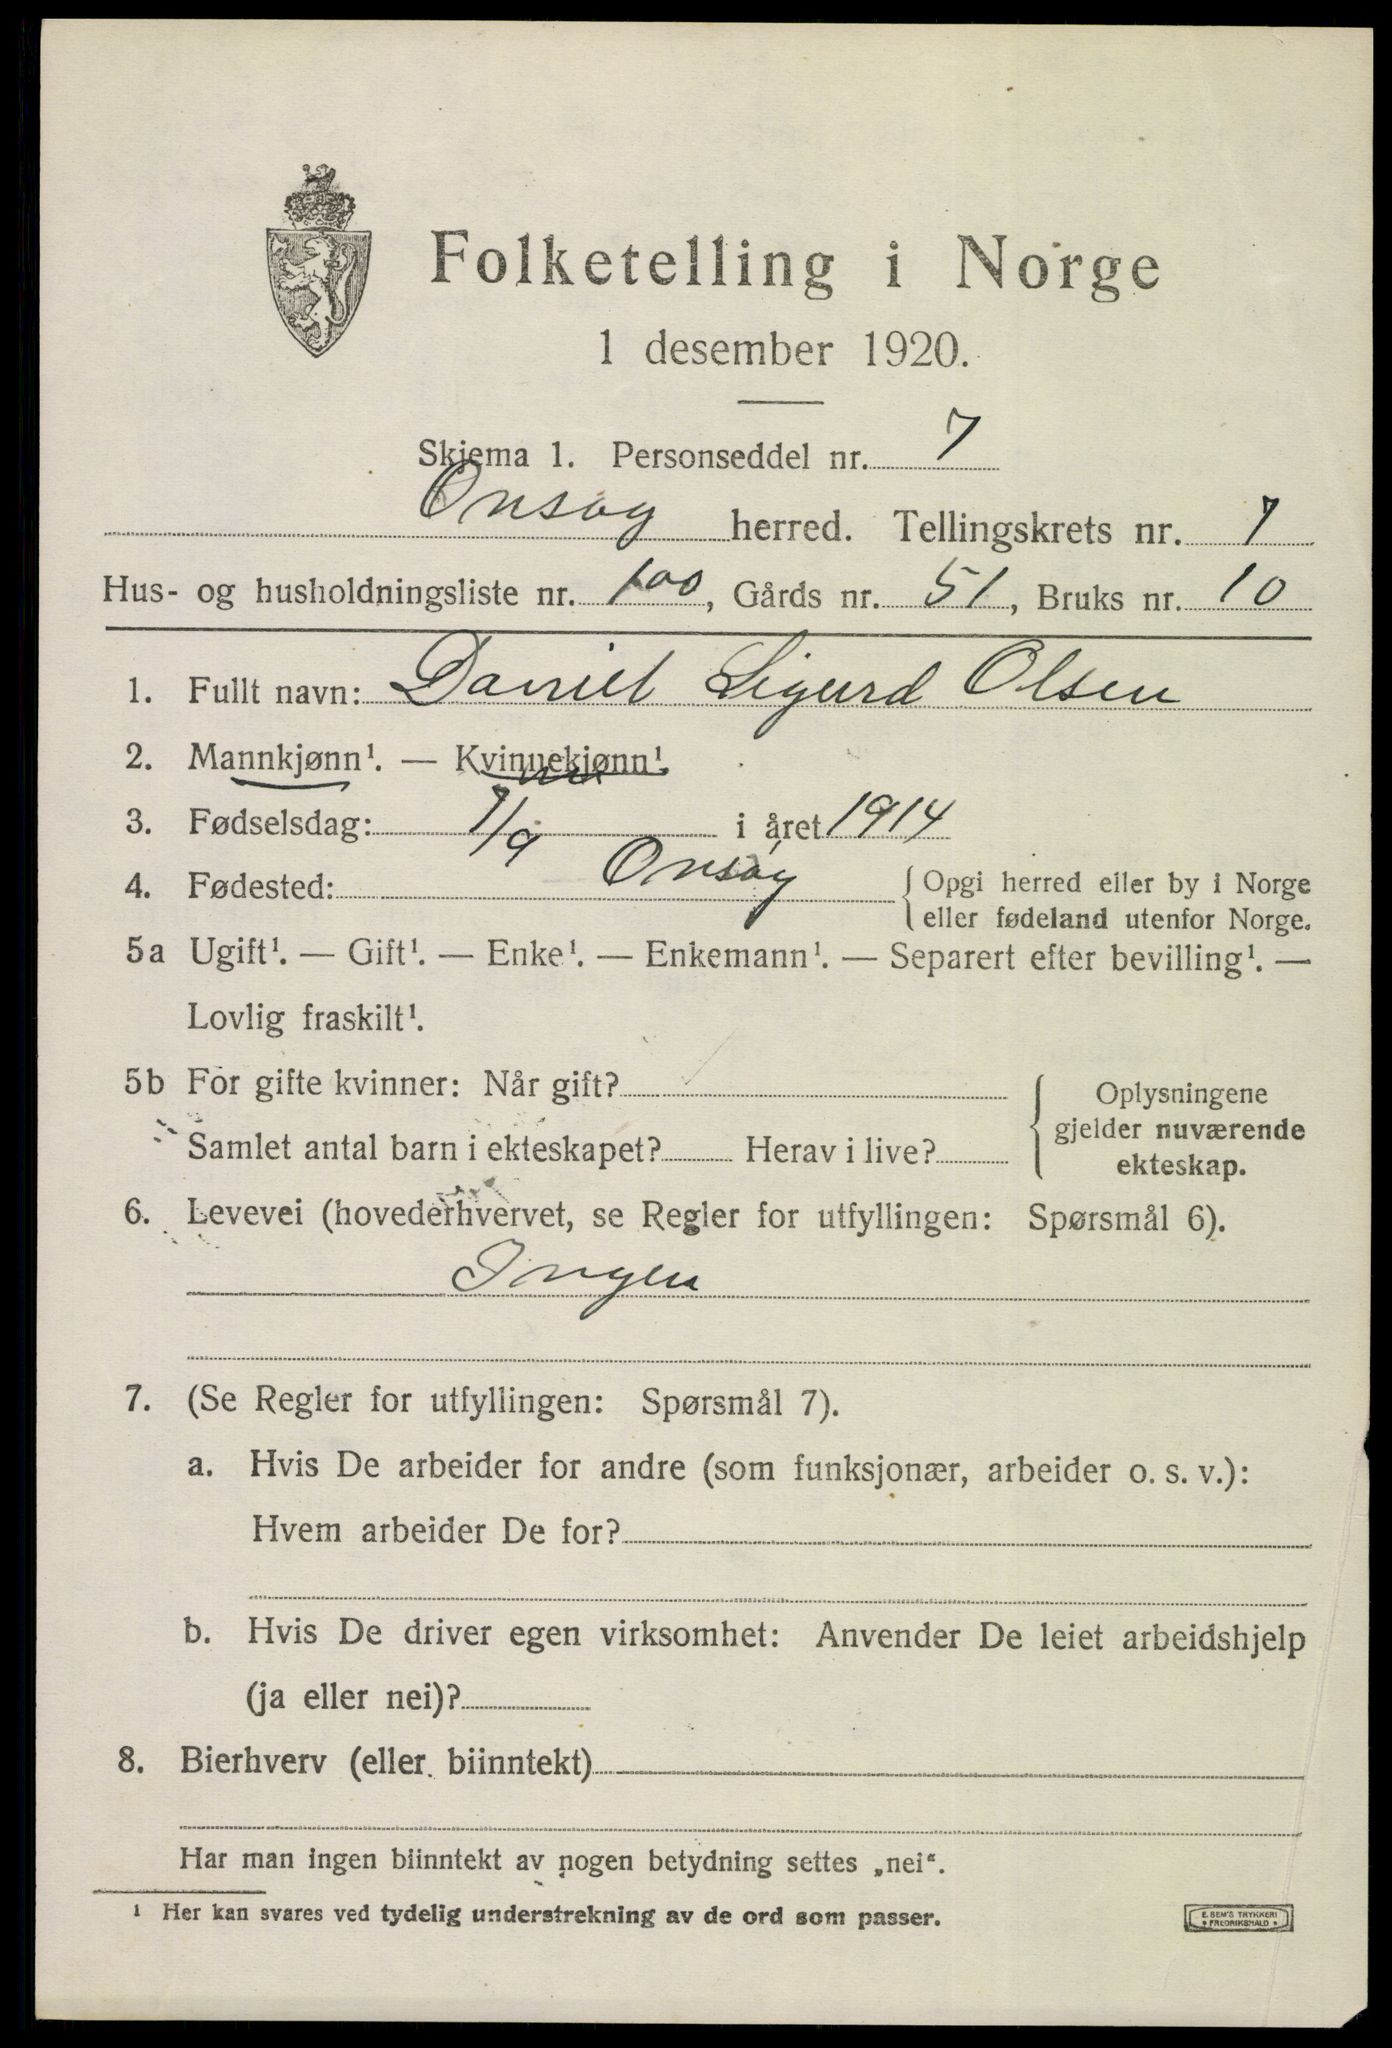 Folketelling i Norge
1 desember 1920.
Skjema 1. Personseddel nr. 7
Onsøy herred. Tellingskrets nr. 7
Hus- og husholdningsliste nr. 100, Gårds nr. 51, Bruks nr. 10
1. Fullt navn: Daniel Sigurd Olsen
2. Mannkjønn¹. — Kvinnekjønn¹.
3. Fødselsdag: 7/9 i året 1914
4. Fødested: Onsøy { Opgi herred eller by i Norge
eller fødeland utenfor Norge.
5a Ugift¹. — Gift¹. — Enke¹. — Enkemann¹. — Separert efter bevilling¹. —
Lovlig fraskilt¹.
5b For gifte kvinner: Når gift?
Samlet antal barn i ekteskapet? Herav i live?
{ Oplysningene
gjelder nuværende
ekteskap.
6. Levevei (hovederhvervet, se Regler for utfyllingen: Spørsmål 6).
Ingen
7. (Se Regler for utfyllingen: Spørsmål 7).
a. Hvis De arbeider for andre (som funksjonær, arbeider o. s. v.):
Hvem arbeider De for?
b. Hvis De driver egen virksomhet: Anvender De leiet arbeidshjelp
(ja eller nei)?
8. Bierhverv (eller biinntekt)
Har man ingen biinntekt av nogen betydning settes „nei“.
¹ Her kan svares ved tydelig understrekning av de ord som passer.
E. SEM'S TRYKKERI
• FREDRIKSHALD •